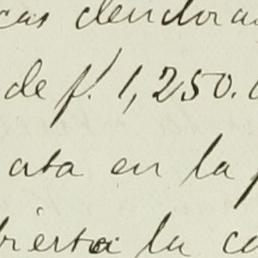 cas deudora
de f! 1,250.
ata en la p
bierta la co